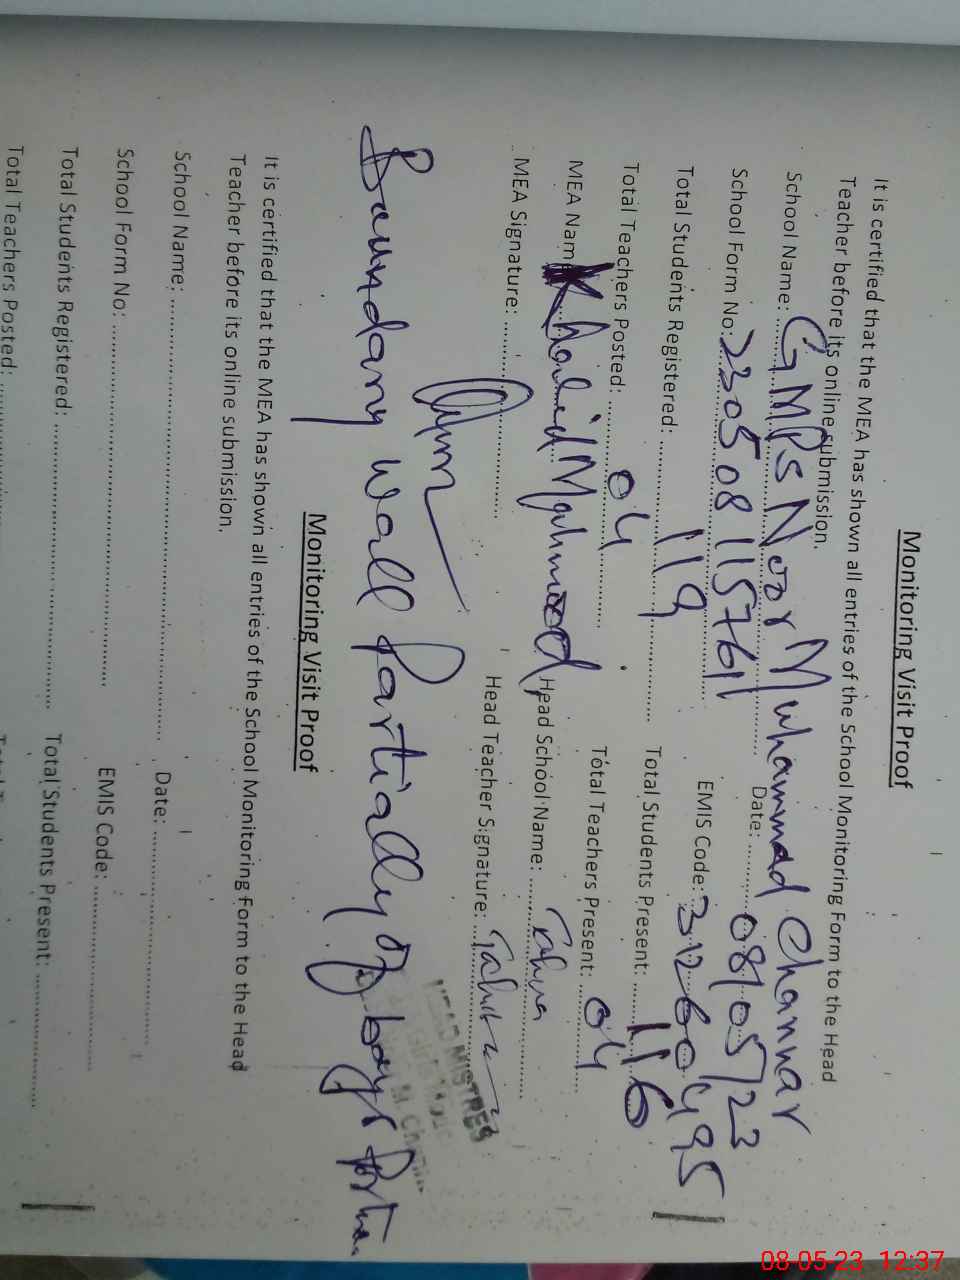 Monitoring Visit Proof
It is certified that the MEA has shown all entries of the School Monitoring Form to the Head
Teacher before its online submission.
School Name: GMPS Noor Muhammad Channar Date: 08/05/23
School Form No: 2305081157611 EMIS Code: 31260495
Total Students Registered: 119 Total Students Present: 116
Total Teachers Posted: 04 Total Teachers Present: 04
MEA Nam Khalid Mahmood Head School Name: Tahira
MEA Signature: Head Teacher Signature: Tahira
HEAD MISTRES
Boundary wall partially of boys Portion.
Monitoring Visit Proof
It is certified that the MEA has shown all entries of the School Monitoring Form to the Head
Teacher before its online submission.
School Name: Date:
School Form No: EMIS Code:
Total Students Registered: Total Students Present:
Total Teachers Posted:
08-05-23 12:37